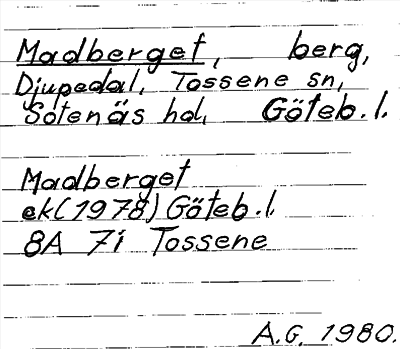 Madberget, berg,
Djupedal, Tossene sn,
Sotenäs hd, Göteb.l.
Madberget
ek(1978) Göteb.l.
8A 7i Tossene
A.G. 1980.